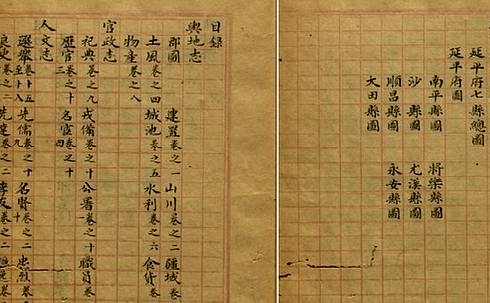 延平府七縣總圖
延平府圖
南平縣圖 將樂縣圖
沙縣圖 尤溪縣圖
順昌縣圖 永安縣圖
大田縣圖
目錄
輿地志
郡圖 建置卷之一 山川卷之二 疆域卷
土風卷之四 城池卷之五 水利卷之六 食貨卷
物產卷之八
官政志
祀典卷之九 戎備卷之十 公署卷之十一 職員卷
歷官卷之十三 名宦卷之十四
人文志
選舉卷十五至十八 先儒卷之十九 名賢卷之二十 忠烈卷之二